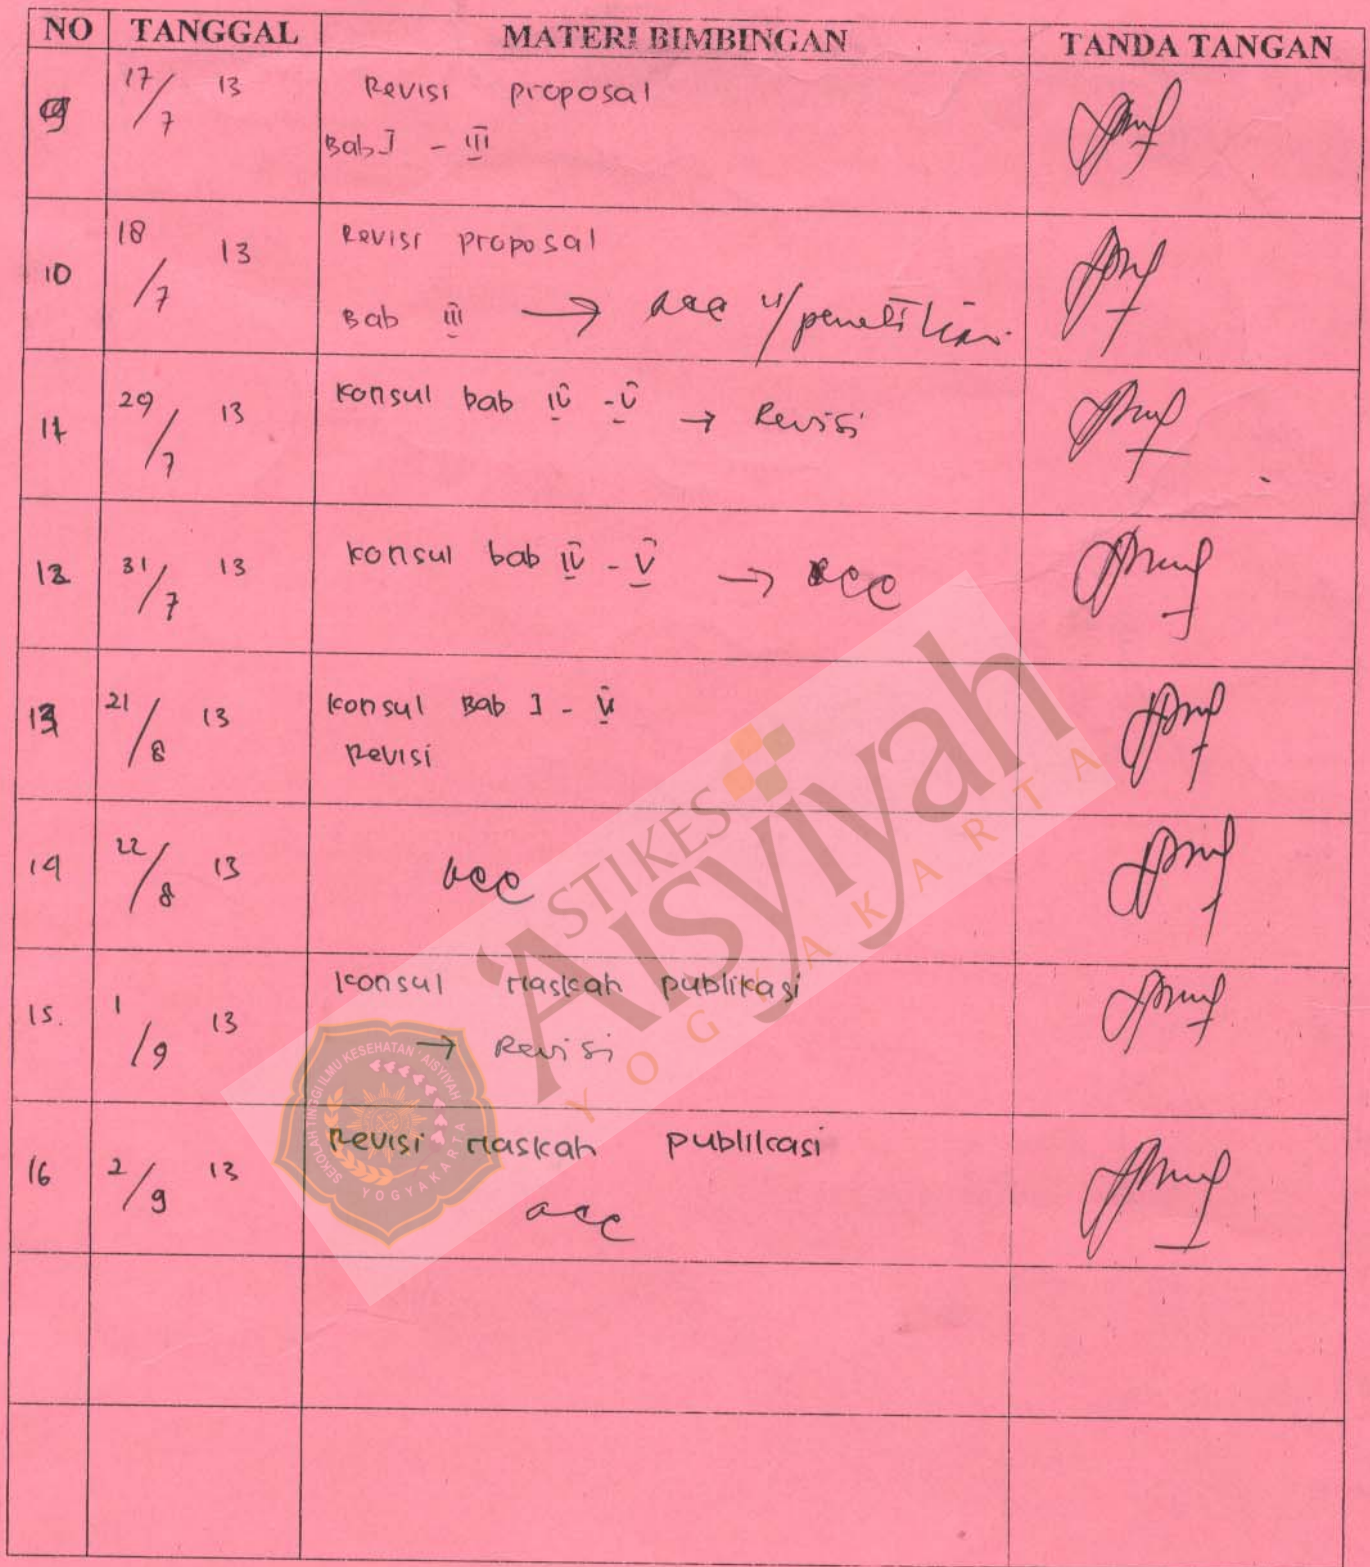 NO TANGGAL MATERI BIMBINGAN TANDA TANGAN
9 17/7 13 Revisi proposal
Bab I - III
10 18/7 13 Revisi proposal
Bab III → acc u/ penelitian
11 29/7 13 Konsul bab IV - V → Revisi
12 31/7 13 Konsul bab IV - V → acc
13 21/8 13 Konsul Bab I - V
Revisi
14 22/8 13 acc
15. 1/9 13 Konsul Naskah publikasi
→ Revisi
16 2/9 13 Revisi Naskah publikasi
acc
STIKES
'Aisyiyah
YOGYAKARTA
SEKOLAH TINGGI ILMU KESEHATAN 'AISYIYAH
YOGYAKARTA